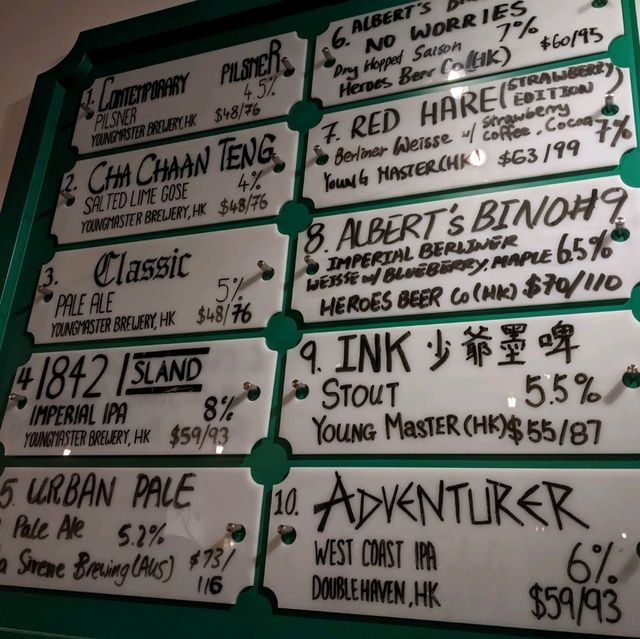 1. CONTEMPORARY PILSNER
PILSNER 4.5%
YOUNGMASTER BREWERY, HK $48/76
2. CHA CHAAN TENG
SALTED LIME GOSE 4%
YOUNGMASTER BREWERY, HK $48/76
3. Classic
PALE ALE 5%
YOUNGMASTER BREWERY, HK $48/76
4 1842 ISLAND
IMPERIAL IPA 8%
YOUNGMASTER BREWERY, HK $59/93
5. URBAN PALE
Pale Ale 5.2%
a Sirene Brewing (AUS) $73/
116
6. ALBERT'S
NO WORRIES
Dry Hopped Saison 7%
Heroes Beer Co (HK) $60/95
7. RED HARE (STRAWBERRY
EDITION)
Berliner Weisse w/ Strawberry
Coffee, Cocoa 7%
YOUNG MASTER (HK) $63/99
8. ALBERT'S BINO#9
IMPERIAL BERLINER
WEISSE w/ BLUEBERRY, MAPLE 6.5%
HEROES BEER Co (HK) $70/110
9. INK 少爺墨啤
STOUT 5.5%
YOUNG MASTER (HK) $55/87
10. ADVENTURER
WEST COAST IPA 6%
DOUBLE HAVEN, HK $59/93